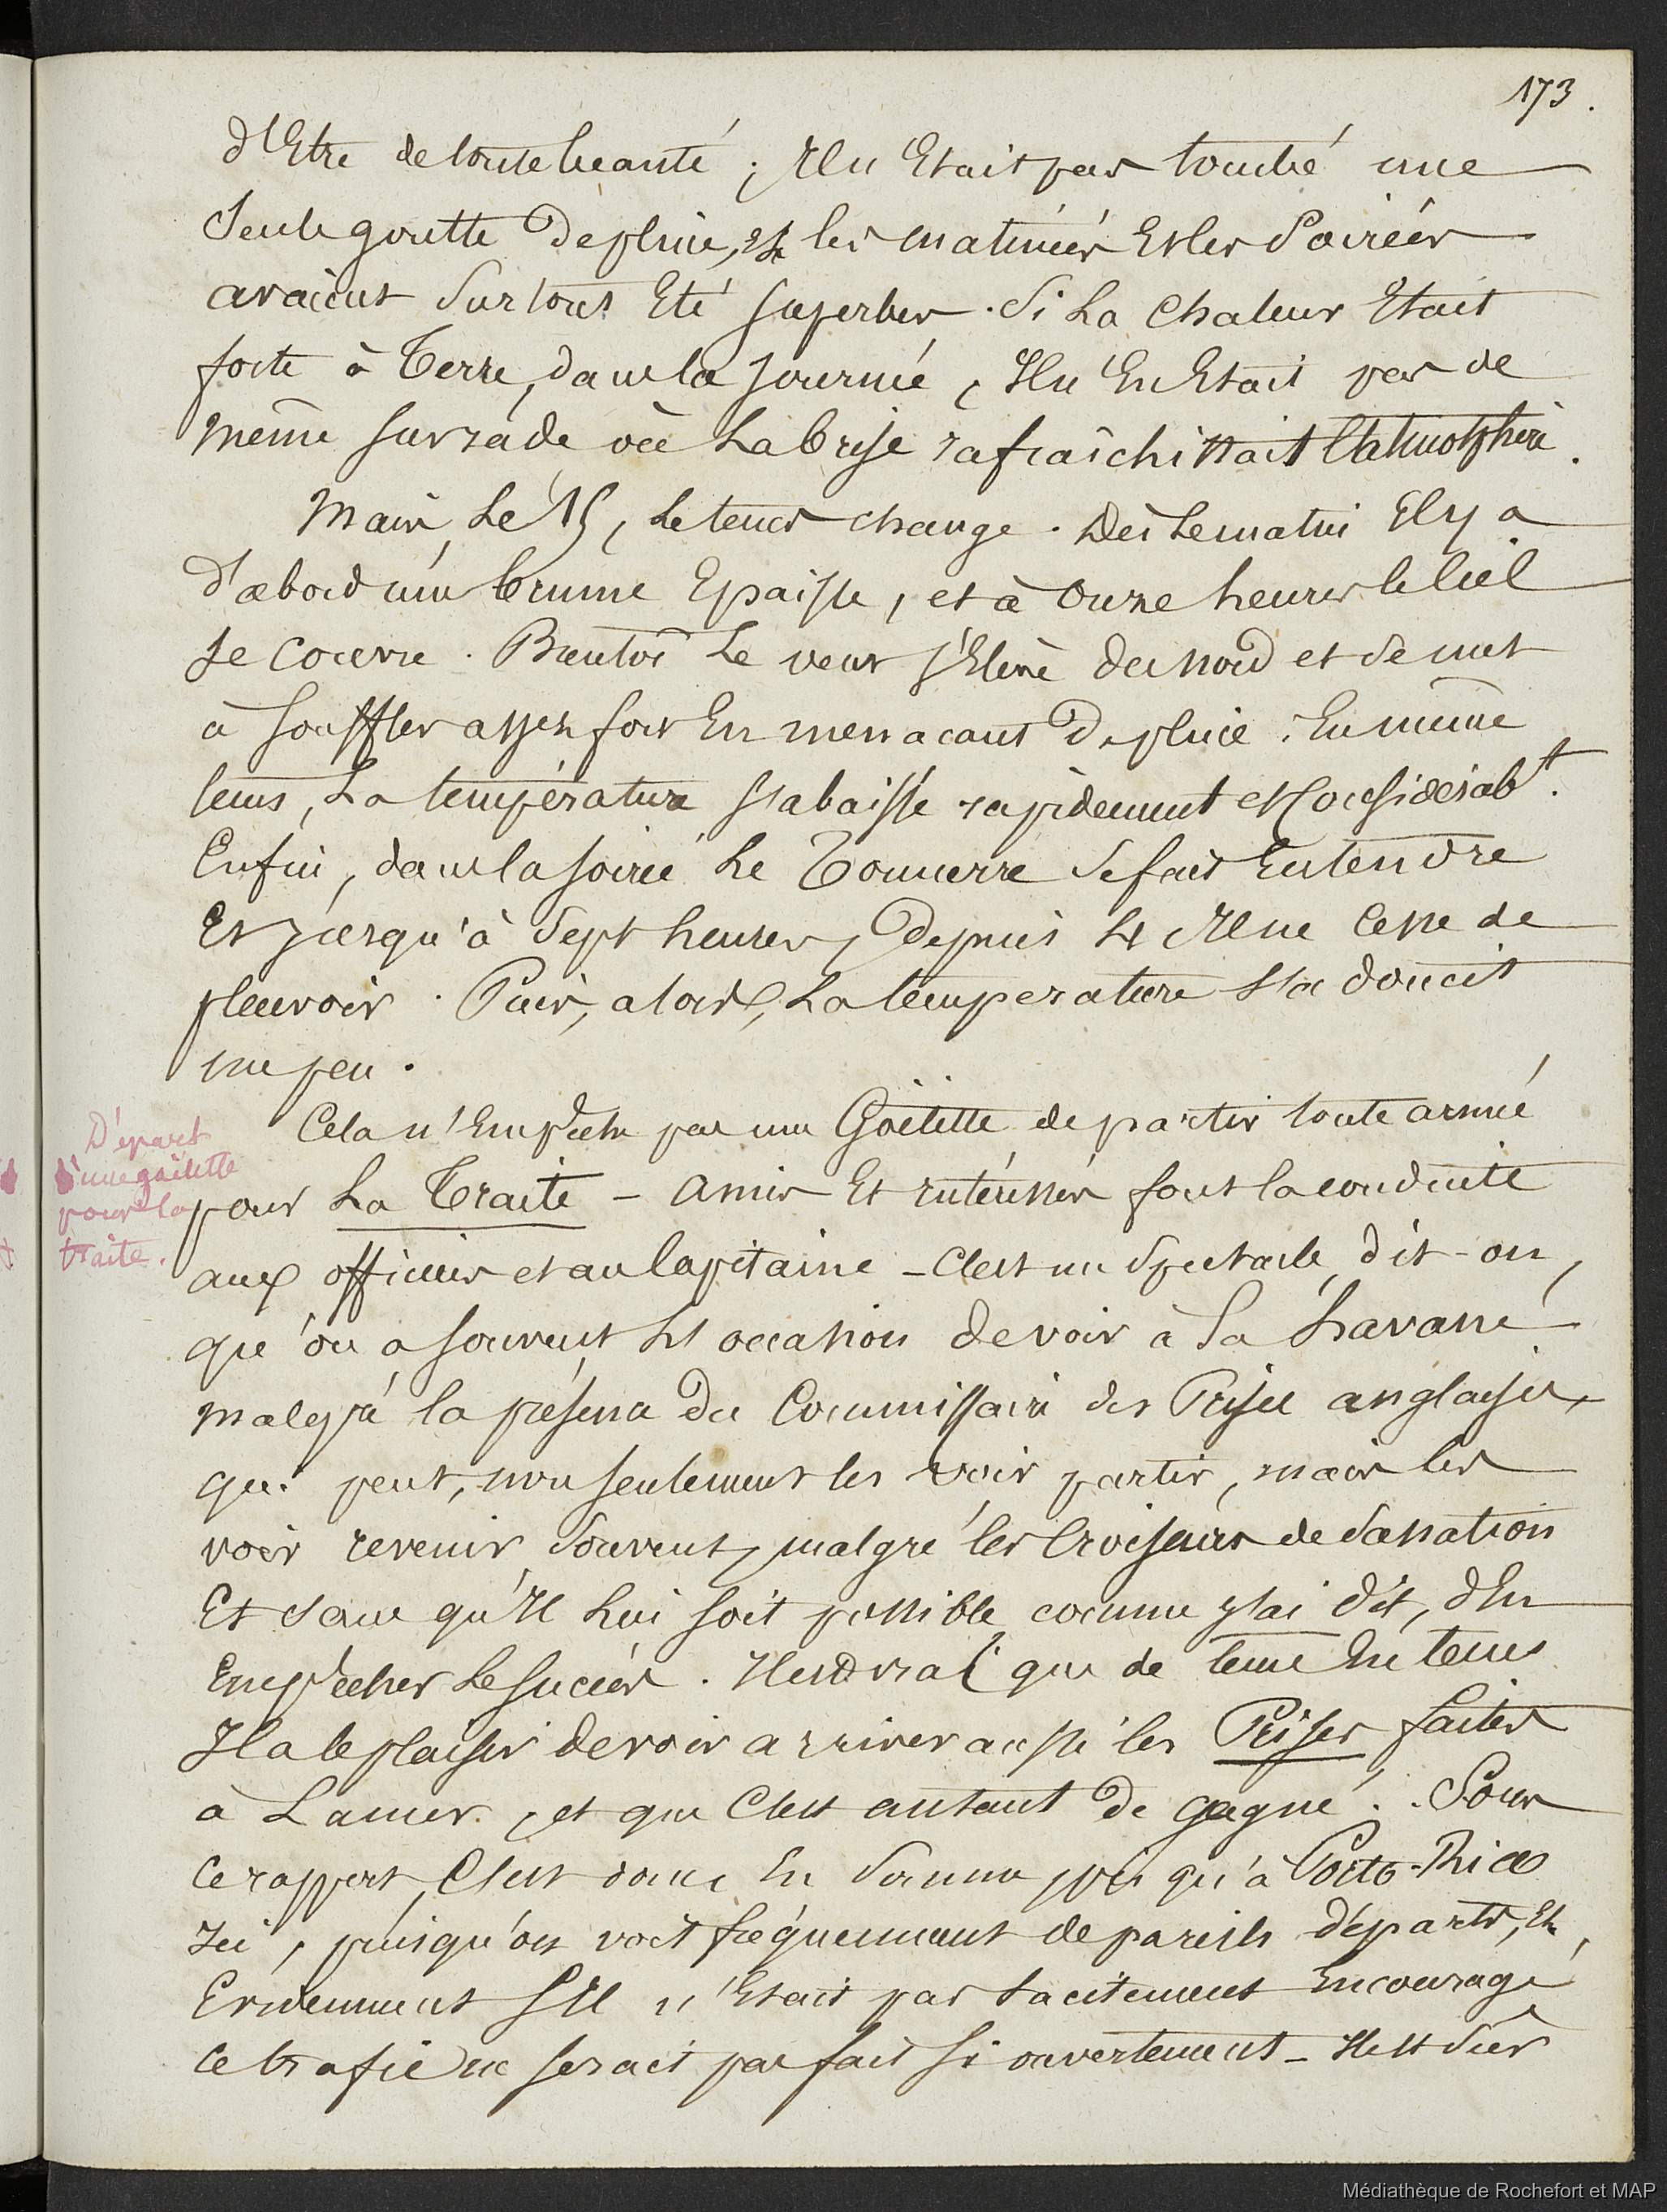 173.
d'Etre de toute beauté ; Il n'Etait pas tombé une
Seule goutte de pluie, et les matinées Et les Soirées
avaient Surtout Eté Superbes. Si La Chaleur Etait
forte à Terre, dans la Journée, Il n'En Etait pas de
même sur rade où La brise rafraîchissait l'atmosphère.
Mais, Le 15, Le tems change. Dès Le matin Il y a
d'abord une brume Epaisse, et à onze heures le Ciel
se couvre. Bientôt Le vent s'Elève du Nord et se met
à souffler assez fort En menaçant de pluie. En même
tems, La température s'abaisse rapidement et Considérabt.
Enfin, dans la soirée Le Tonnerre Se fait Entendre
Et jusqu'à Sept heures, Depuis 4 Il ne Cesse de
pleuvoir. Puis, alors, La température s'adoucit
un peu.
Cela n'Empêche pas une Goëlette de partir toute armée
pour La Traite - Amis Et intéressés font la conduite
aux officiers et au Capitaine - C'est un Spectacle, dit-on,
qu'on a souvent L'occasion de voir à La havane
malgré la présence du Commissaire des Prises anglaises,
qui peut, non seulement les voir partir, mais les
voir revenir Souvent, malgré les Croiseurs de Sa nation
Et Sans qu'Il Lui soit possible, comme j'ai dit, d'En
Empêcher Le Succès. Il est vrai que de tems En tems
Il a le plaisir de voir arriver aussi les Prises faites
à La mer, et que C'est autant de gagné. Sous
Ce rapport, C'est donc En Somme pis qu'à Porto-Rico
Ici, puisqu'on voit fréquemment de pareils départs, Et,
Evidemment S'Il n'Etait pas tacitement Encouragé,
Ce trafic ne serait pas fait si ouvertement - Il est Sûr
Départ
d'une goëlette
pour la
traite.
Médiathèque de Rochefort et MAP